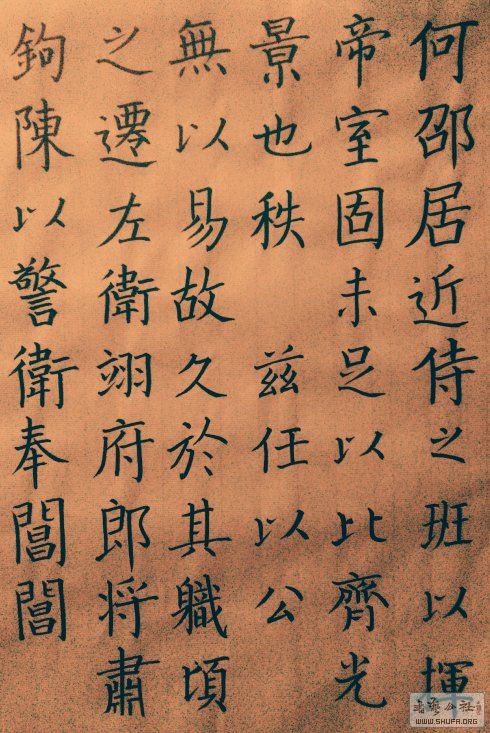 何邵居近侍之班以揮
帝室固未足以比齊光
景也秩 茲任以公
無以易故久於其職頃
之遷左衛翊府郎将肅
鉤陳以警衛奉閶閶
书艺公社
WWW.SHUFA.ORG